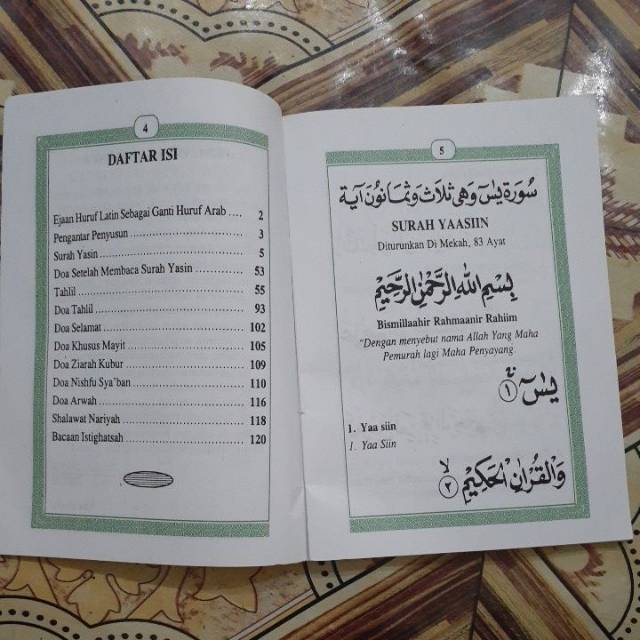 4
DAFTAR ISI
Ejaan Huruf Latin Sebagai Ganti Huruf Arab .... 2
Pengantar Penyusun .... 3
Surah Yasin .... 5
Doa Setelah Membaca Surah Yasin .... 53
Tahlil .... 55
Doa Tahlil .... 93
Doa Selamat .... 102
Doa Khusus Mayit .... 105
Doa Ziarah Kubur .... 109
Doa Nishfu Sya'ban .... 110
Doa Arwah .... 116
Shalawat Nariyah .... 118
Bacaan Istighatsah .... 120
5
سُورَة يٰسٓ وَهِيَ ثَلَاثٌ وَثَمَانُونَ آيَة
SURAH YAASIIN
Diturunkan Di Mekah, 83 Ayat
بِسْمِ اللهِ الرَّحْمٰنِ الرَّحِيْمِ
Bismillaahir Rahmaanir Rahiim
"Dengan menyebut nama Allah Yang Maha
Pemurah lagi Maha Penyayang.
يٰسٓ ۚ ﴿١﴾
1. Yaa siin
1. Yaa Siin
وَالْقُرْاٰنِ الْحَكِيْمِ ۙ ﴿٢﴾